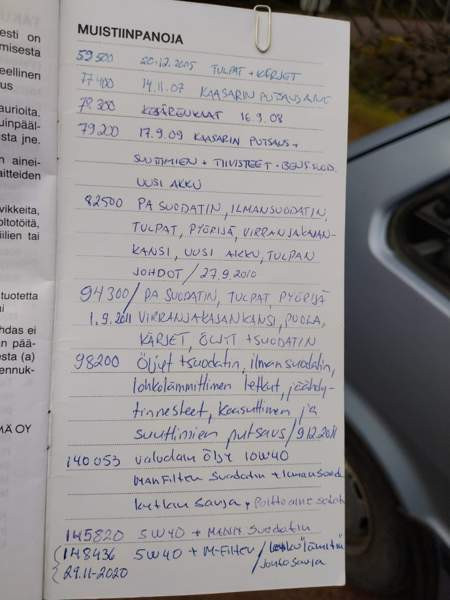 esti on
misesta
eellinen
us
aurioita.
uinpääl-
sta jne.
ainei-
aitteiden
vikkeita,
oltotöitä,
iilien tai
tuotetta
ai
hdas ei
n pää-
esta (a)
ennuk-
MÄ OY
MUISTIINPANOJA
59500 20.12.2005 TULPAT + KÄRJET
77400 14.11.07 KAASARIN PUTSAUS
78300 KESÄRENKAAT 16.9.08
79200 17.9.09 KAASARIN PUTSAUS +
SUUTTIMIEN + TIIVISTEET + BENS.SUOD.
UUSI AKKU
82500 PA SUODATIN, ILMANSUODATIN,
TULPAT, PYÖRIJÄ, VIRRANJAKAJAN-
KANSI, UUSI AKKU, TULPAN
JOHDOT / 27.9.2010
94300 / PA SUODATIN, TULPAT, PYÖRIJÄ
1.9.2011 VIRRANJAKAJANKANSI, PUOLA,
KÄRJET, ÖLJYT + SUODATIN
98200 Öljyt + suodatin, ilmansuodatin,
lohkolämmittimen letkut, jäähdy-
tinnesteet, kaasuttimen ja
suuttimien putsaus / 9.12.2011
140053 öljy 10W40
MANFilter Suodatin + Ilmansuod.
145820 5W40 + MANN Suodatin
148436 5W40 + M-Filter /
29.11-2020